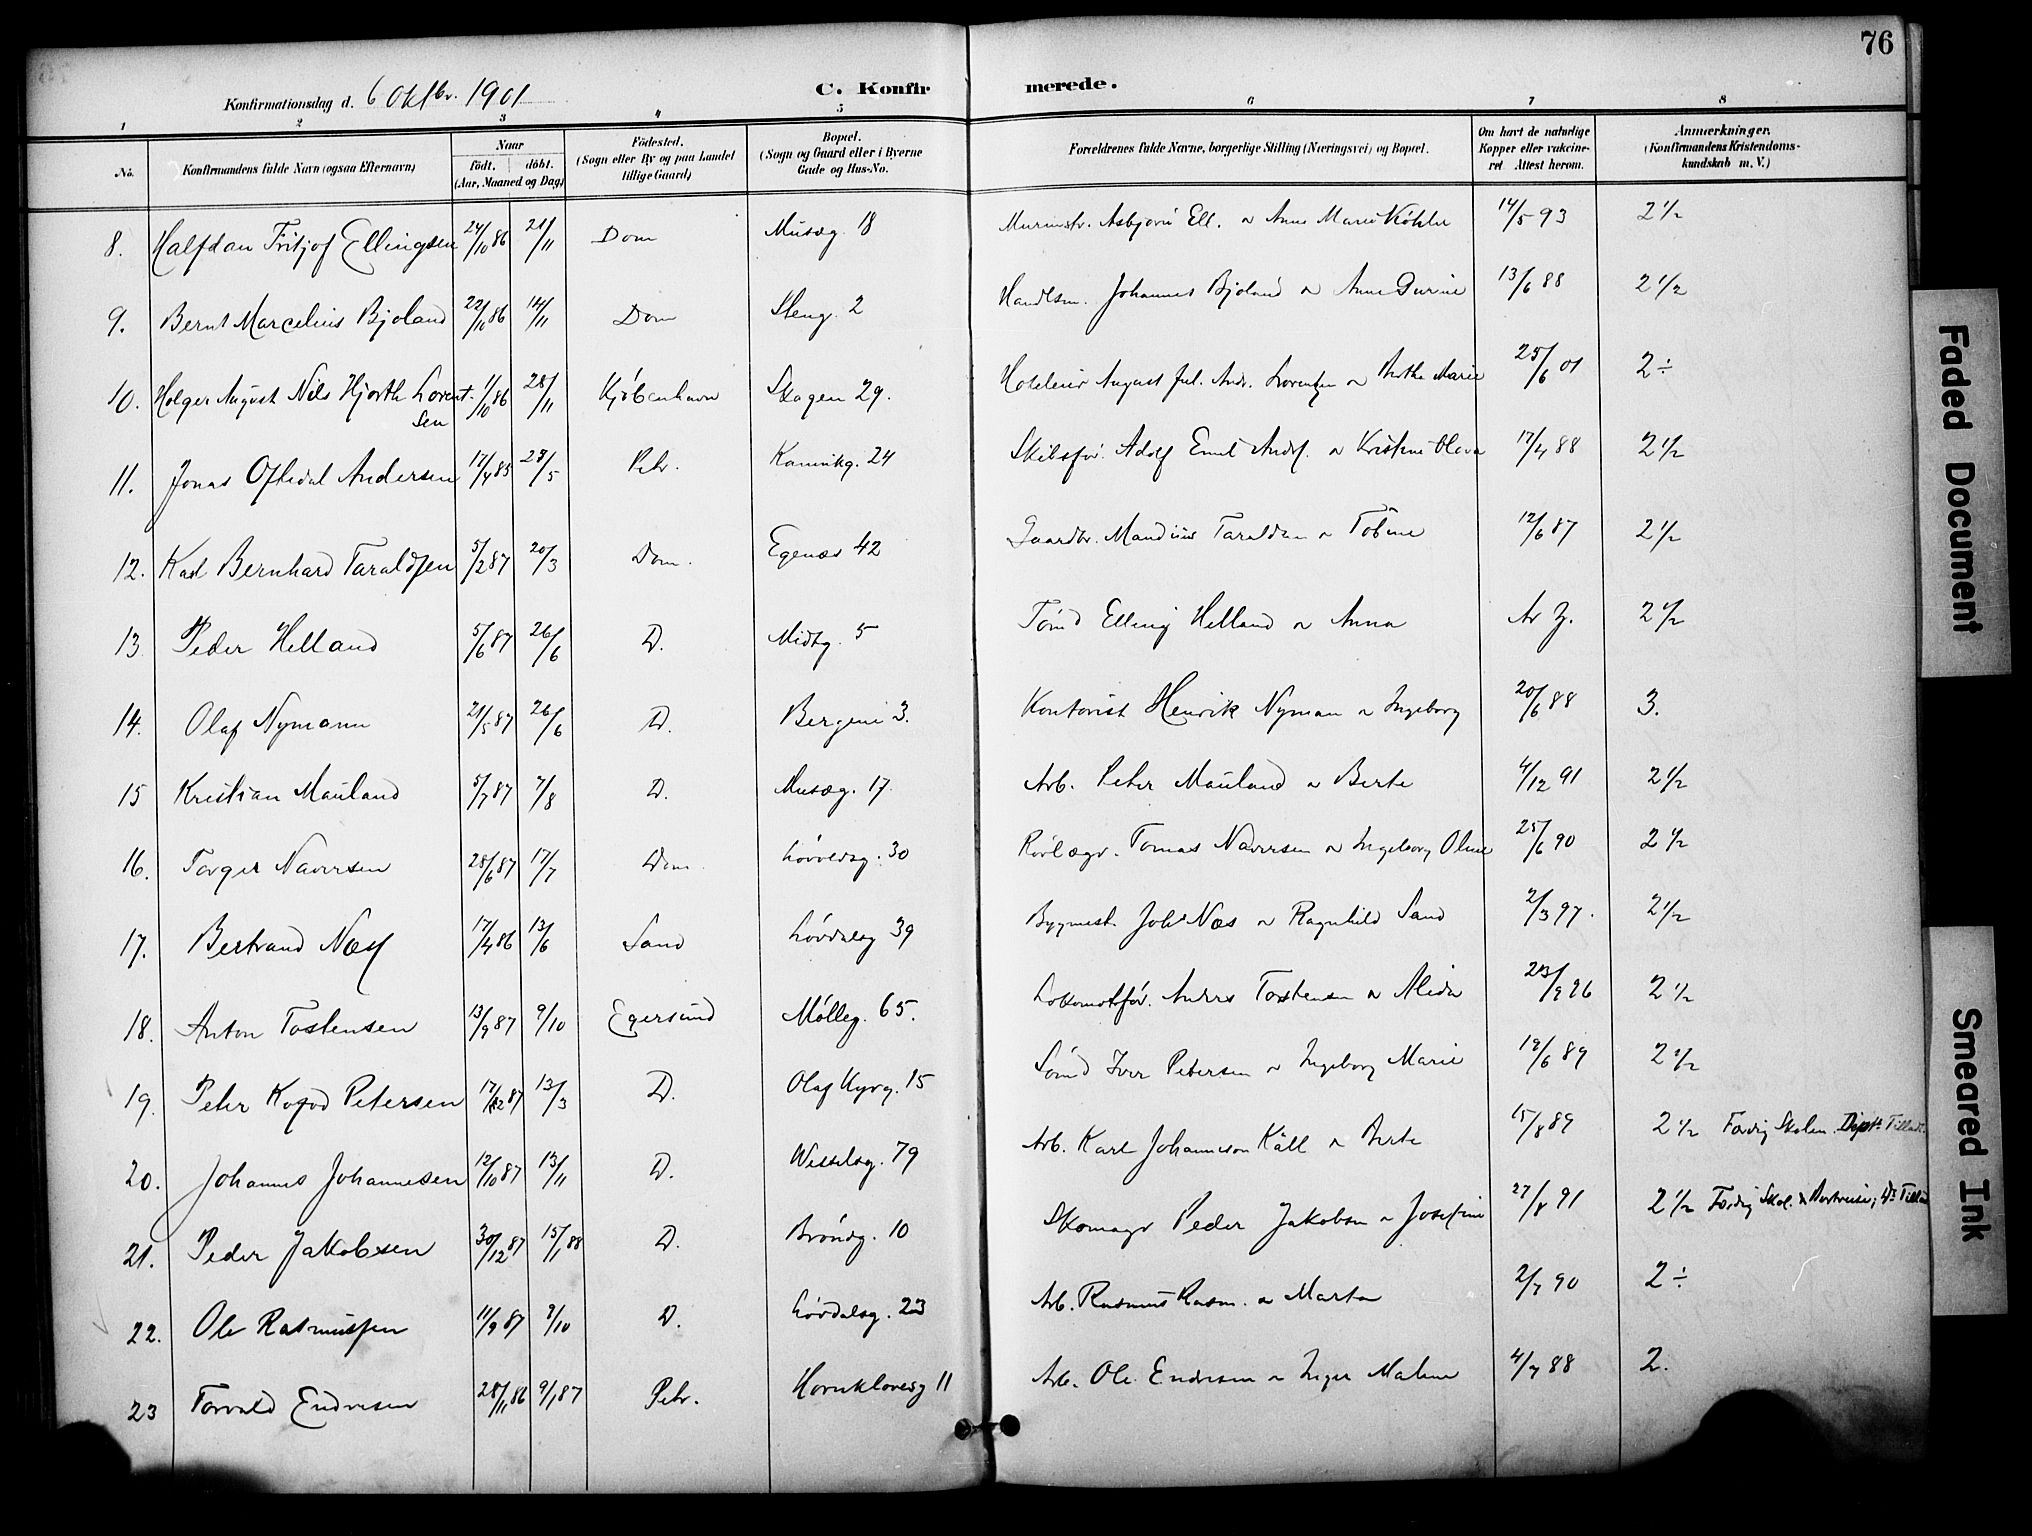 76
Konfirmationsdag d. 6 Oktbr. 1901 C. Konfirmerede.
1 2 3 4 5 6 7 8
No. Konfirmandens fulde Navn (ogsaa Efternavn) Naar födt. döbt. (Aar, Maaned og Dag) Födested. (Sogn eller By og paa Landet tillige Gaard) Bopæl. (Sogn og Gaard eller i Byerne Gade og Hus-No. Forældrenes fulde Navne, borgerlige Stilling (Næringsvei) og Bopæl. Om havt de naturlige Kopper eller vakcineret Attest herom. Anmærkninger. (Konfirmandens Kristendomskundskab m. V.)
8. Halfdan Fritjof Ellingsen 24/10 86 21/11 Dom Musæg. 18 Murmstr. Asbjørn Ell. o Anne Marie Köhler 14/5 93 2 1/2
9. Bernt Marcelius Bjoland 22/10 86 14/11 Dom Steng. 2 Handlsm. Johannes Bjoland o Anne Gurine 13/6 88 2 1/2
10. Holger August Nils Hjorth Lorentsen 1/10 86 28/11 Kjøbenhavn Skagen 29. Hoteleier August Jul. Andr. Lorentzen o Marie 25/6 01 2 ÷
11. Jonas Oftedal Andersen 17/4 85 28/5 Petr. Kannikg. 24 Skibsfør. Adolf Emil Andr. o Kristine Olava 17/4 88 2 1/2
12. Karl Bernhard Taraldsen 5/2 87 20/3 Dom. Egenæs 42 Gaardbr. Mandius Taraldsen o Tobine 12/6 87 2 1/2
13. Peder Helland 5/6 87 26/6 D. Midtg. 5 Tømd Elling Helland o Anna 2 1/2
14. Olaf Nymann 21/5 87 26/6 D. Bergeni 3. Kontorist Henrik Nyman o Ingeborg 20/6 88 3.
15 Kristian Mauland 5/7 87 7/8 D. Musæg. 17. Arb. Peter Mauland o Berte 4/12 91 2 1/2
16. Torger Naversen 28/6 87 17/7 Dom Løvoldsg. 30 Rørlægr. Tomas Naversen o Ingeborg Oline 25/6 90 2 1/2
17. Bertrand Næs 17/4 86 13/6 Sand Løvdalsg 39 Bygmest. Johs Næs o Ragnhild Sand 2/3 97. 2 1/2
18. Anton Tostensen 13/9 87 9/10 Egersund Mølleg. 65. Lokomotfør. Andrs Tostensen o Alida 2 1/2
19. Peter Kofod Petersen 17/12 87 13/3 D. Olaf Kyrg. 15 Sømd Iver Petersen o Ingeborg Marie 19/6 89 2 1/2
20. Johannes Johannesen 12/10 87 13/11 D. Wesselsg. 79 Arb. Karl Johanneson Käll o Berte 15/8 89 2 1/2 Færdig Skolen.
21. Peder Jakobsen 30/12 87 15/1 88 D. Brøndg. 10 Skomagr Peder Jakobsen o Josefine 27/8 91 2 1/2 Færdig Skol.
22. Ole Rasmussen 11/9 87 9/10 D. Løvdalsg. 23 Arb. Rasmus Rasm. o Marta 2/7 90 2 ÷
23 Torvald Endresen 28/11 86 9/1 87 Petr. Hornklovesg 11 Arb. Ole Endresen o Inger Malene 4/7 88 2.
Faded Document
Smeared Ink